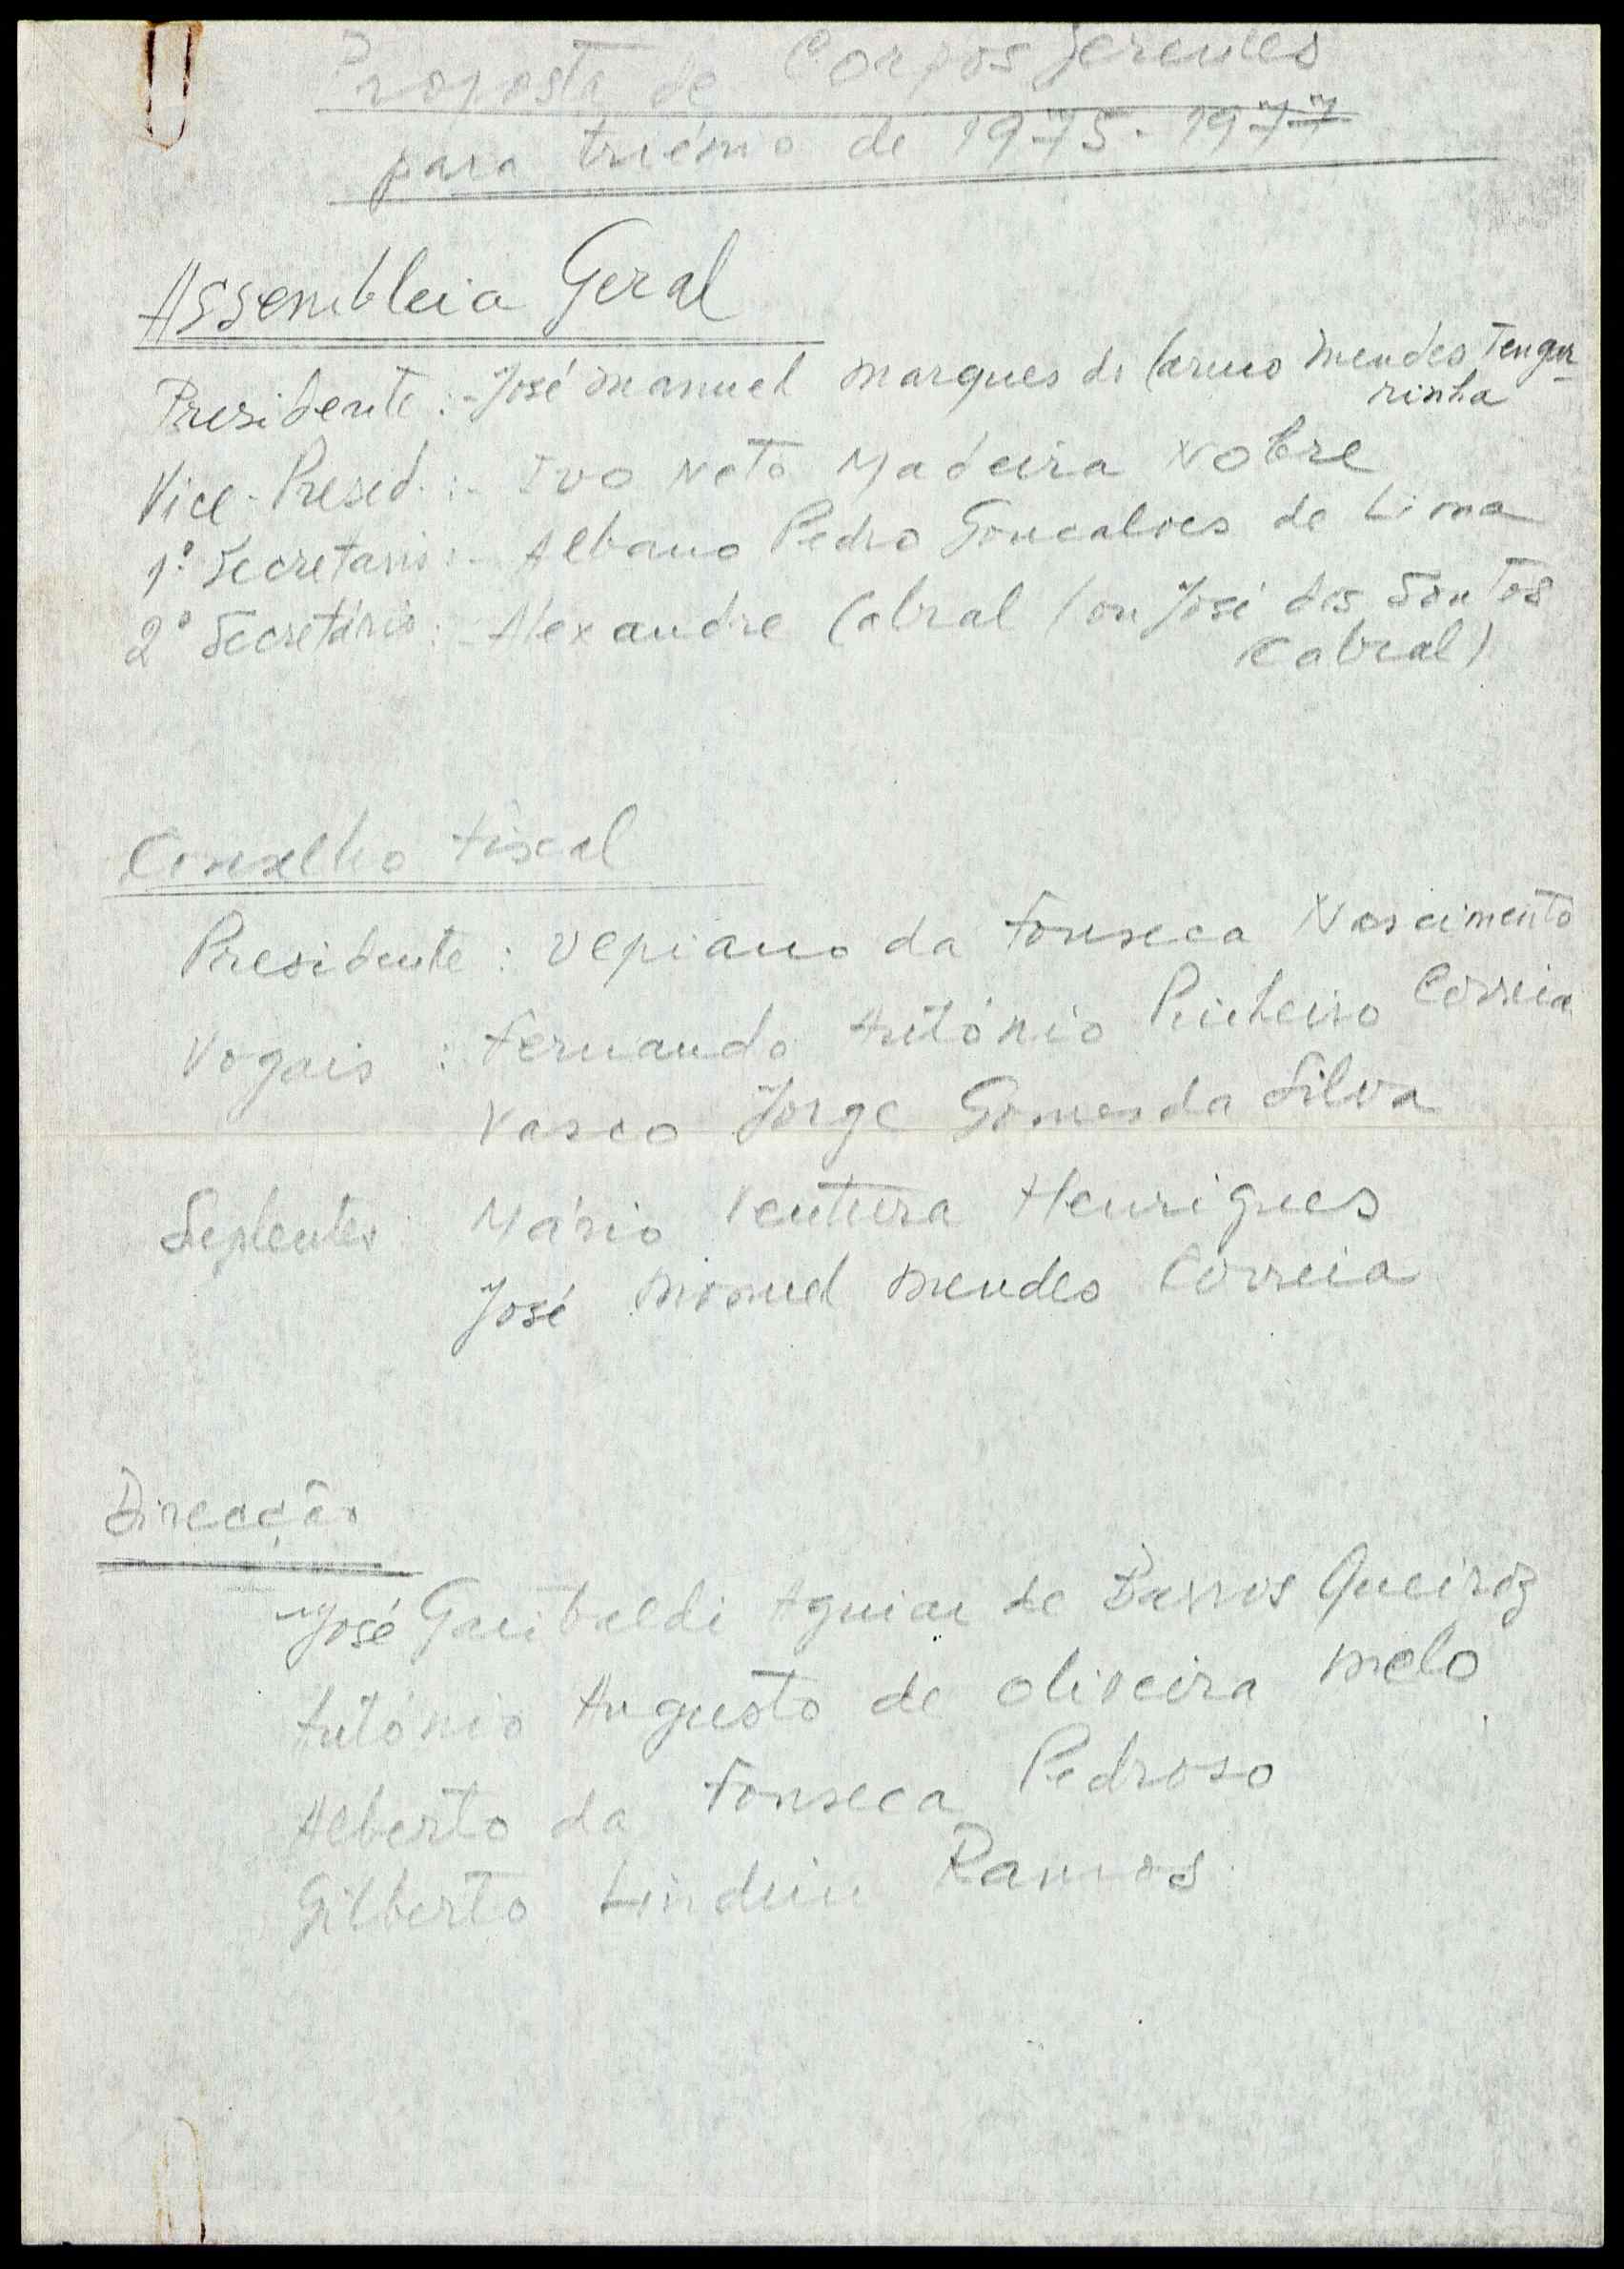 Proposta de Corpos Gerentes
para triénio de 1975-1977
Assembleia Geral
Presidente:- José Manuel Marques do Carmo Mendes Tengar-
rinha
Vice-Presid.:- Ivo Neto Madeira Nobre
1º Secretario:- Albano Pedro Goncalves de Lima
2º Secretário:- Alexandre Cabral (ou José dos Santos
Cabral)
Conselho Fiscal
Presidente: Vepiano da Fonseca Nascimento
Vogais: Fernando António Pinheiro Correia
Vasco Jorge Gomes da Silva
Suplentes Mário Ventura Henriques
José Manuel Mendes Correia
Direcção
José Garibaldi Aguiar de Barros Queiroz
António Augusto de Oliveira Melo
Alberto da Fonseca Pedroso
Gilberto Lindim Ramos